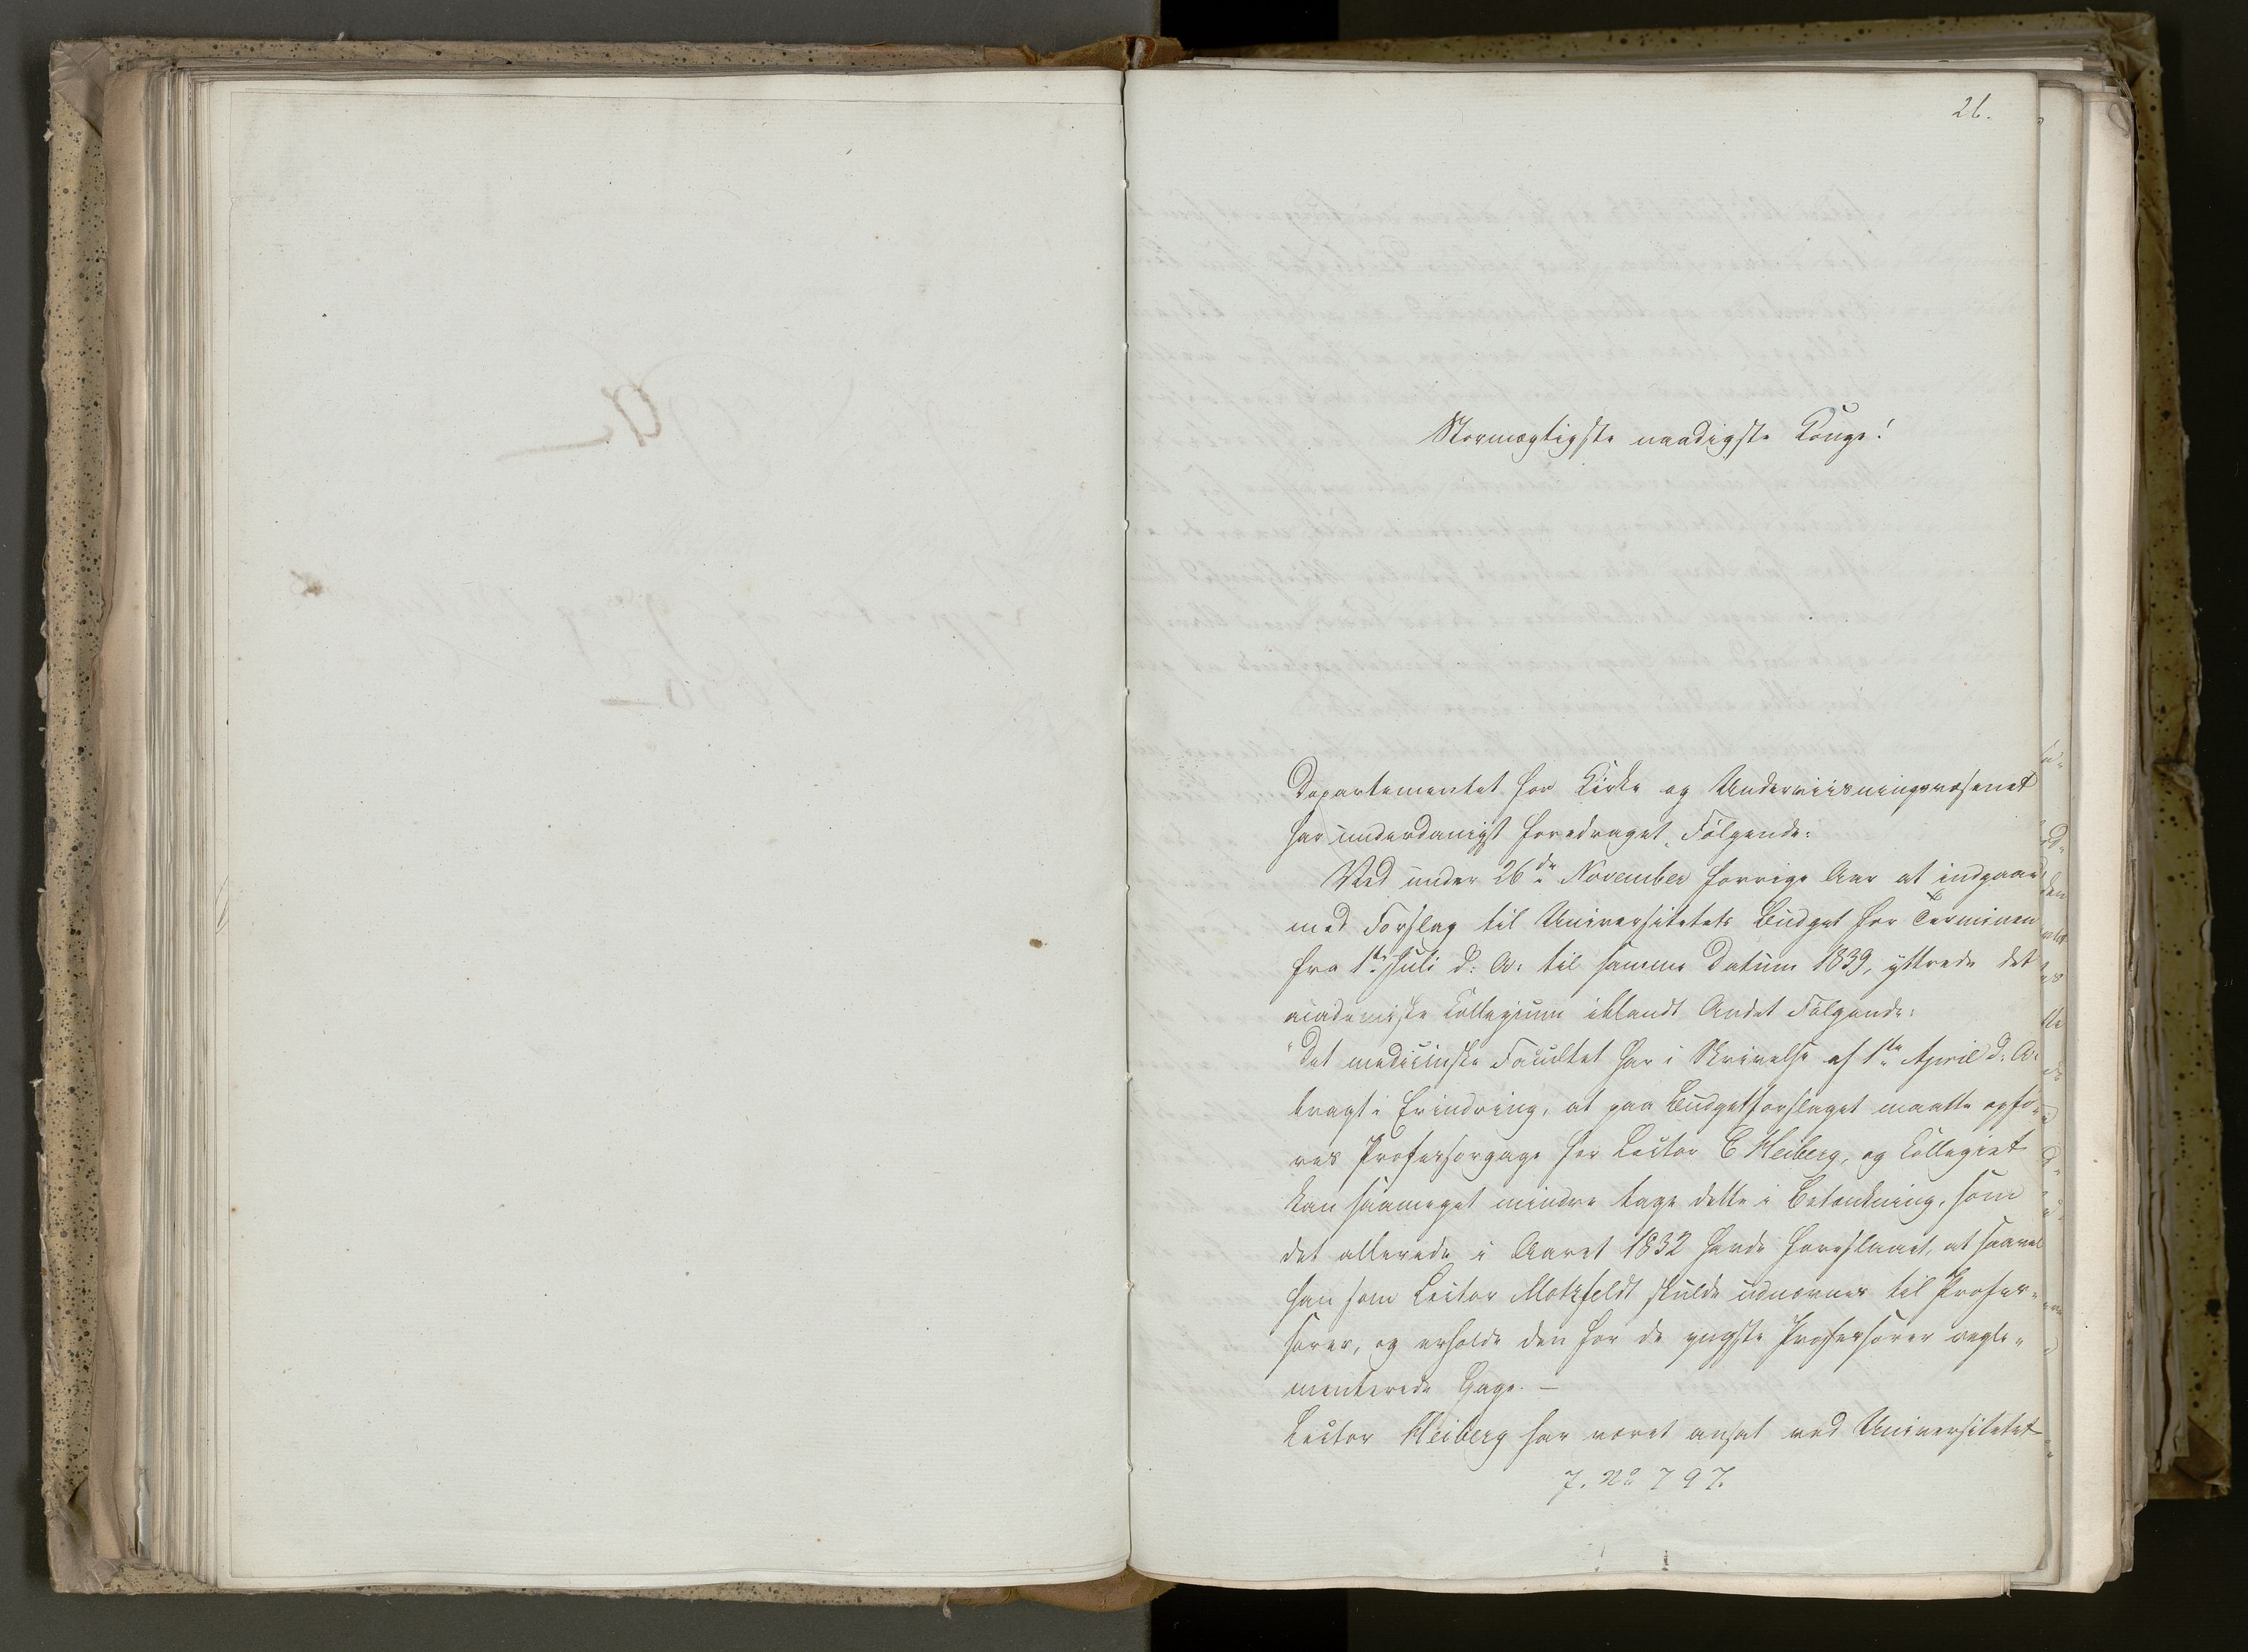 26.
Stormægtigste naadigste Konge!
Departementet for Kirke og Underviisningsvæsenet
har underdanigst foredraget Følgende:
Ved under 26de November forrige Aar at indgaae
med Forslag til Universitetets Budget for Terminen
fra 1ste Juli d: A: til samme Datum 1839, yttrede det
academiske Collegium iblandt Andet Følgende:
"Det medicinske Facultet har i Skrivelse af 1ste April d: A:
bragt i Erindring, at paa Budgetforslaget maatte opfø-
res Professorgage for Lector C Heiberg, og Collegiet
kan saameget mindre tage dette i Betænkning, som
det allerede i Aaret 1832 havde foreslaaet, at saavel
han som Lector Motzfeldt skulde udnævnes til Profes-
sorer, og erholde den for de yngste Professorer regle-
menterede Gage. —
Lector Heiberg har været ansat ved Universitetet
J. No 797.